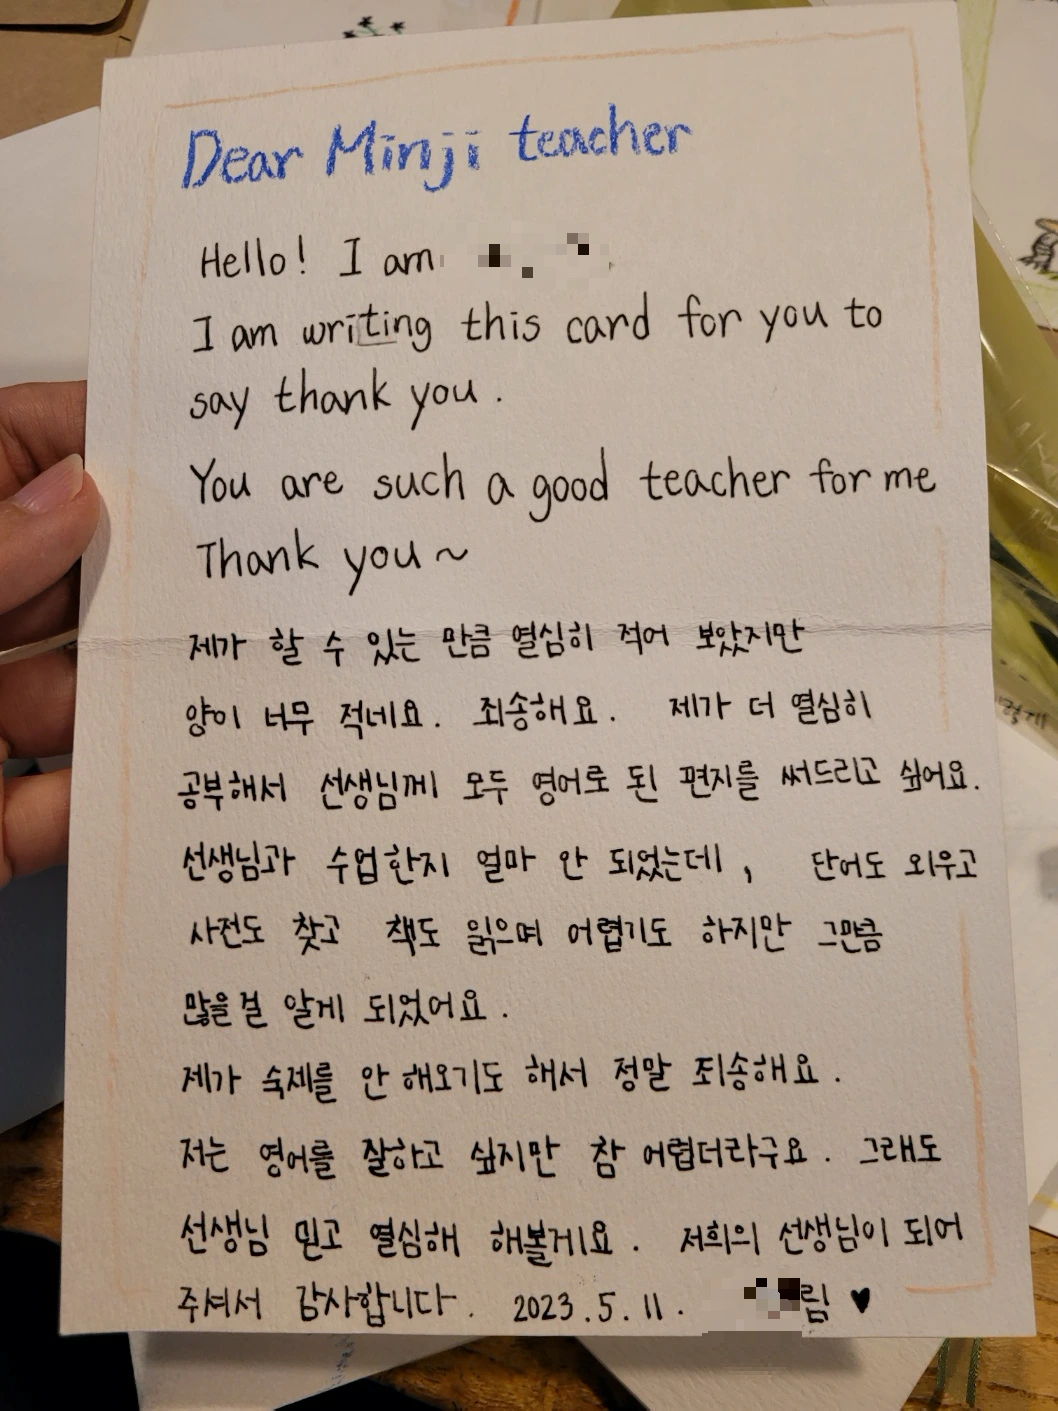 Dear Minji teacher
Hello! I am
I am writing this card for you to
say thank you.
You are such a good teacher for me
Thank you~
제가 할 수 있는 만큼 열심히 적어 보았지만
양이 너무 적네요. 죄송해요. 제가 더 열심히
공부해서 선생님께 모두 영어로 된 편지를 써드리고 싶어요.
선생님과 수업한지 얼마 안 되었는데, 단어도 외우고
사전도 찾고 책도 읽으며 어렵기도 하지만 그만큼
많을걸 알게 되었어요.
제가 숙제를 안 해오기도 해서 정말 죄송해요.
저는 영어를 잘하고 싶지만 참 어렵더라구요. 그래도
선생님 믿고 열심해 해볼게요. 저희의 선생님이 되어
주셔서 감사합니다. 2023.5.11. 림 ♥